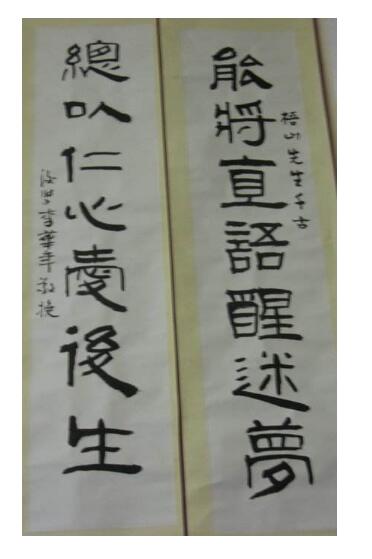 能將直語醒迷夢
梧山先生千古
總以仁心愛後生
後學李華年敬挽